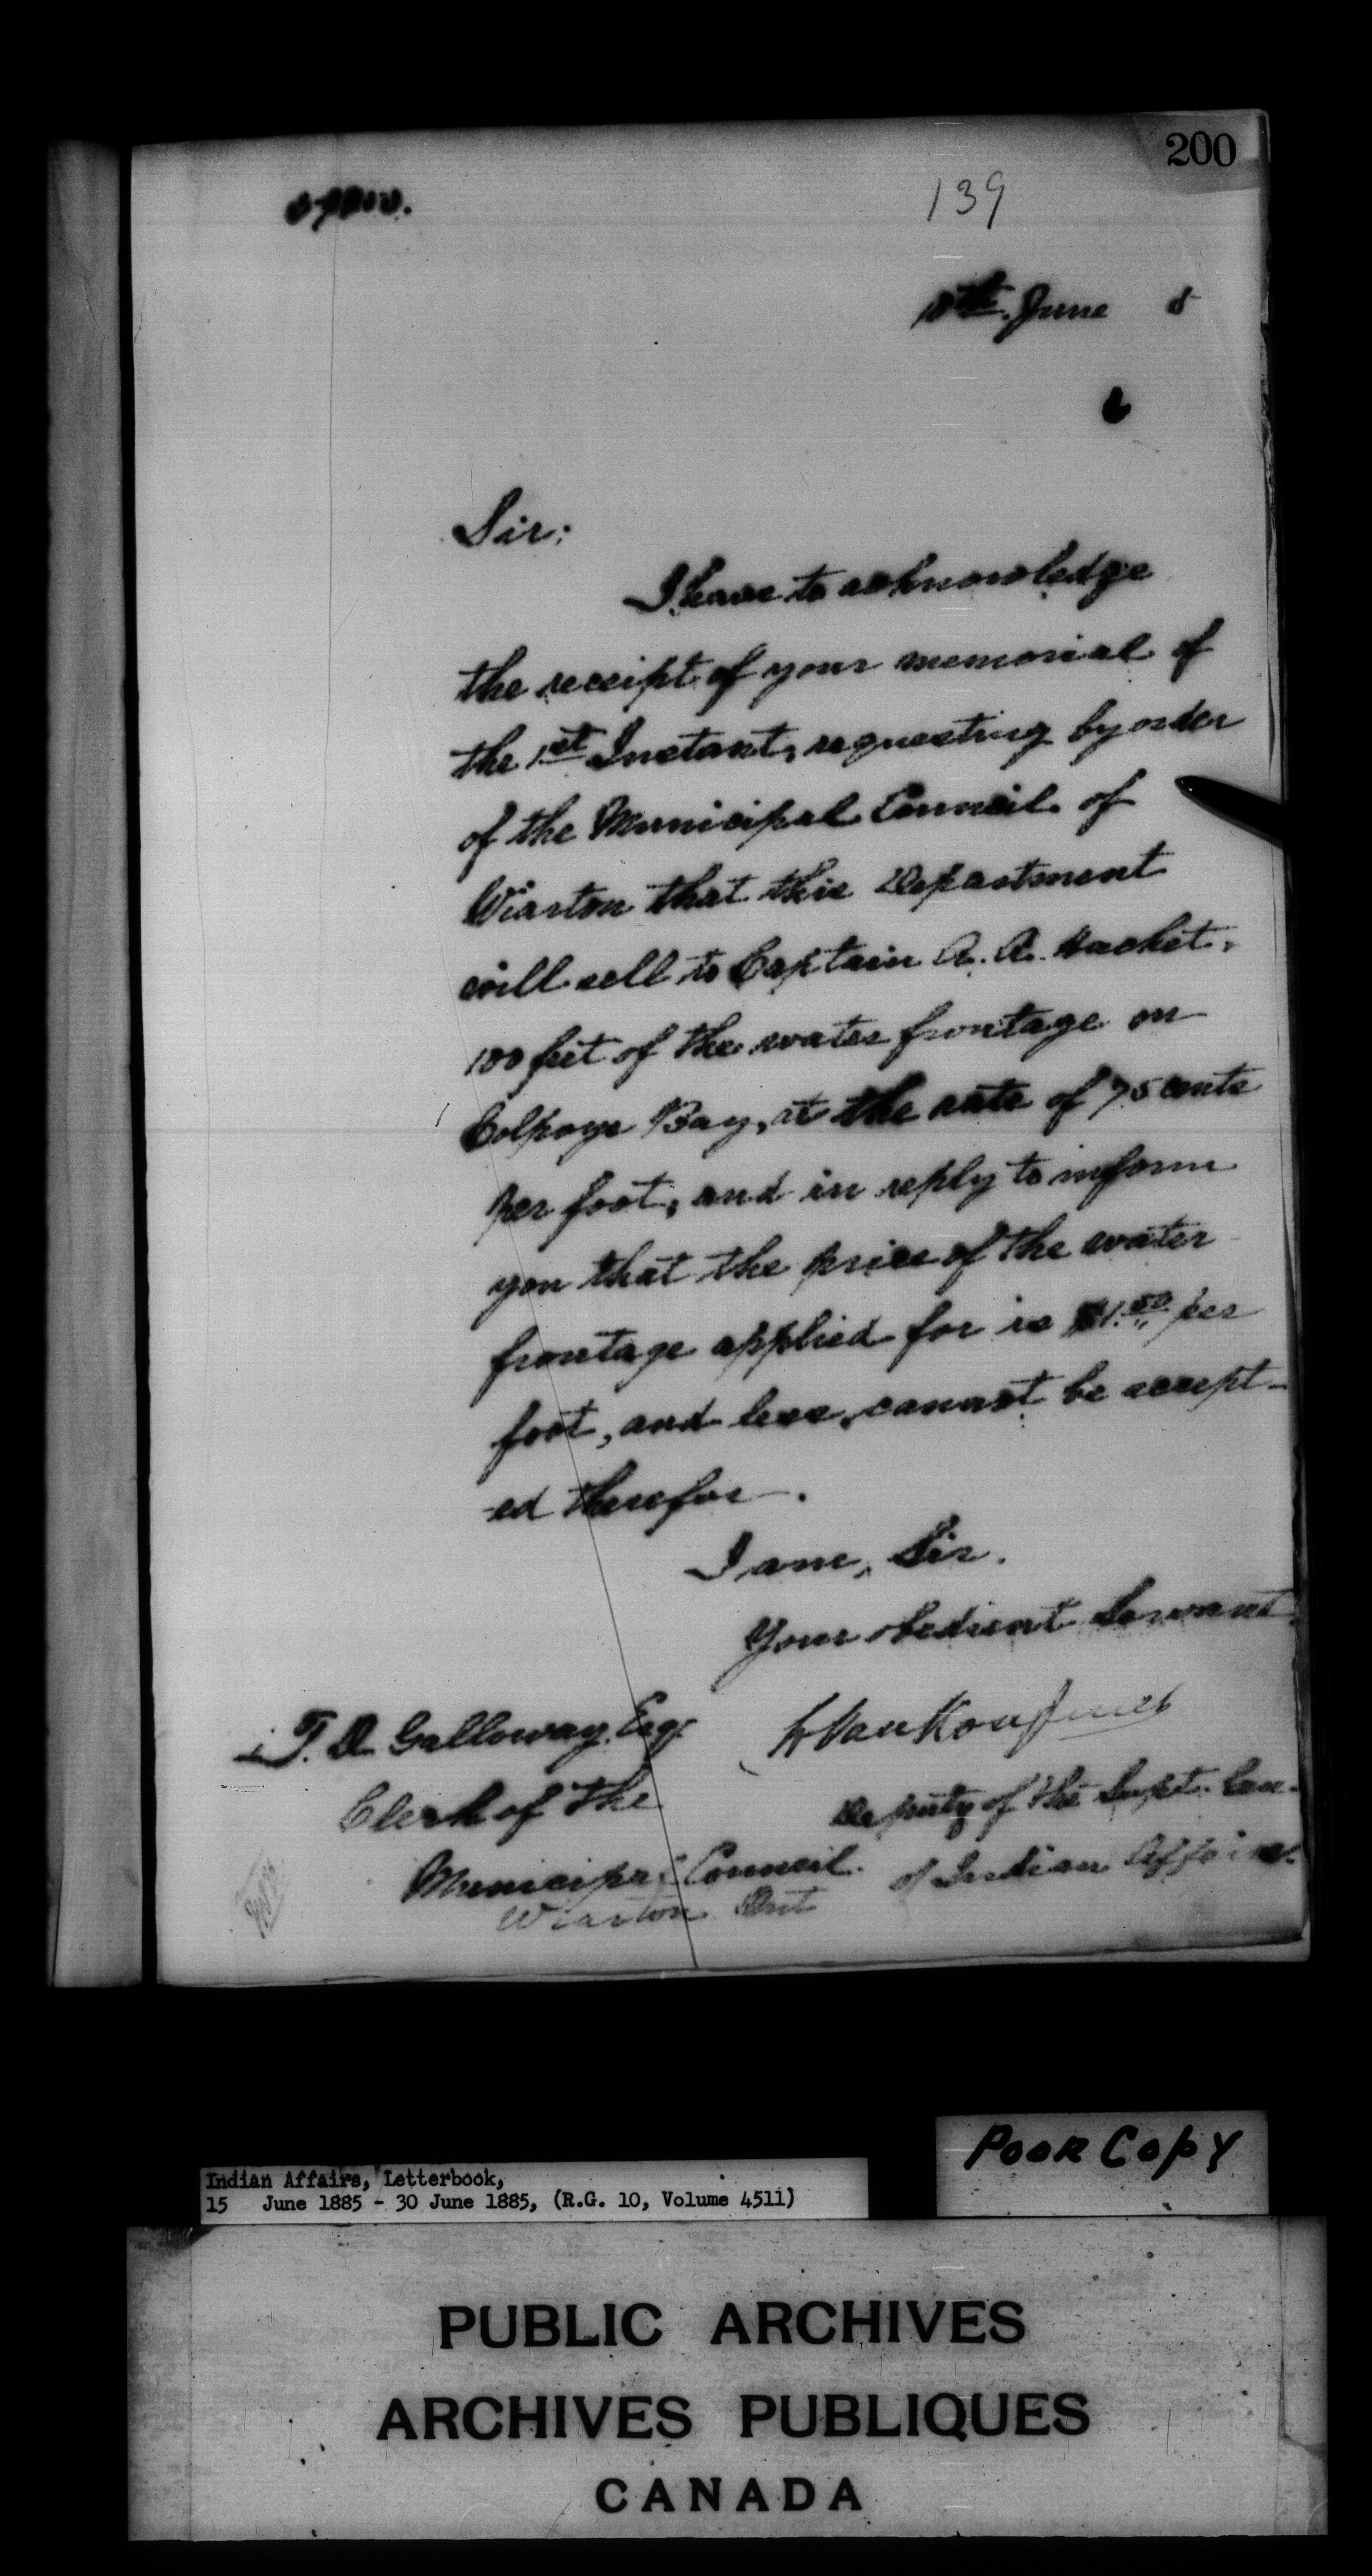 200
139
18th. June 5
Sir:
I have to acknowledge
the receipt of your memorial of
the 1st Instant, requesting by order
of the Municipal Council of
Wiarton that this Department
will sell to Captain A. A. Hacket,
100 feet of the water frontage on
Colpoys Bay, at the rate of 75 cents
per foot, and in reply to inform
you that the price of the water
frontage applied for is $1.50 per
foot, and less, cannot be accept-
-ed therefor.
I am, Sir.
Your obedient Servant.
T. D. Galloway, Esq.
L Vankoughnet
Clerk of the
Deputy of the Supt. Gen.
Municipal Council.
of Indian Affairs.
Wiarton Ont
Poor Copy
Indian Affairs, Letterbook,
15 June 1885 - 30 June 1885, (R.G. 10, Volume 4511)
PUBLIC ARCHIVES
ARCHIVES PUBLIQUES
CANADA